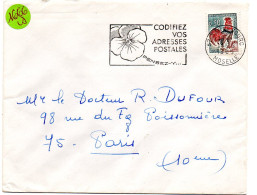 CODIFIEZ
VOS
ADRESSES
POSTALES
PENSEZ-Y...
MOSELLE
Mr le Docteur R. DUFOUR
98 rue du Fg Poissonnières
75. Paris
(10eme)